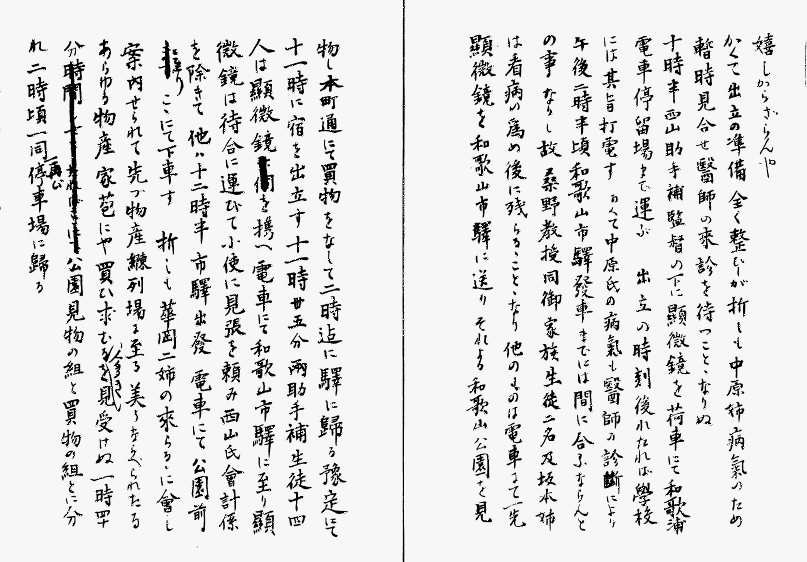 嬉しからざらんや
かくて出立の準備全く整ひしが折しも中原姉病氣のため
暫時見合せ醫師の來診を待つこととなりぬ
十時半西山助手補監督の下に顯微鏡を荷車にて和歌浦
電車停留場まで運ぶ 出立の時刻後れたれば學校
には其旨打電す かくて中原氏の病氣も醫師の診斷により
午後二時半頃和歌山市驛發車までには間に合ふならんと
の事なりし故桑野教授同御家族生徒二名及坂本姉
は看病の爲め後に残らるることとなり他のものは電車にて一先
顯微鏡を和歌山市驛に送りそれより和歌山公園を見
物し本町通にて買物をなして二時迄に驛に歸る豫定にて
十一時に宿を出立す十一時廿五分兩助手補生徒十四
人は顯微鏡 個を携へ電車にて和歌山市驛に至り顯
微鏡は待合に運びて小使に見張を頼み西山氏會計係
を除きて他は十二時半市驛出發電車にて公園前
に至り ここにて下車す 折しも華岡二姉の來らるるに會し
案内せられて先づ物産陳列場に至る 美くならべられたる
あらゆる物産家苞にや買ひ求むる人多きを見受けぬ一時四十
分 公園見物の組と買物の組とに分
れ二時頃一同再び停車場に歸る